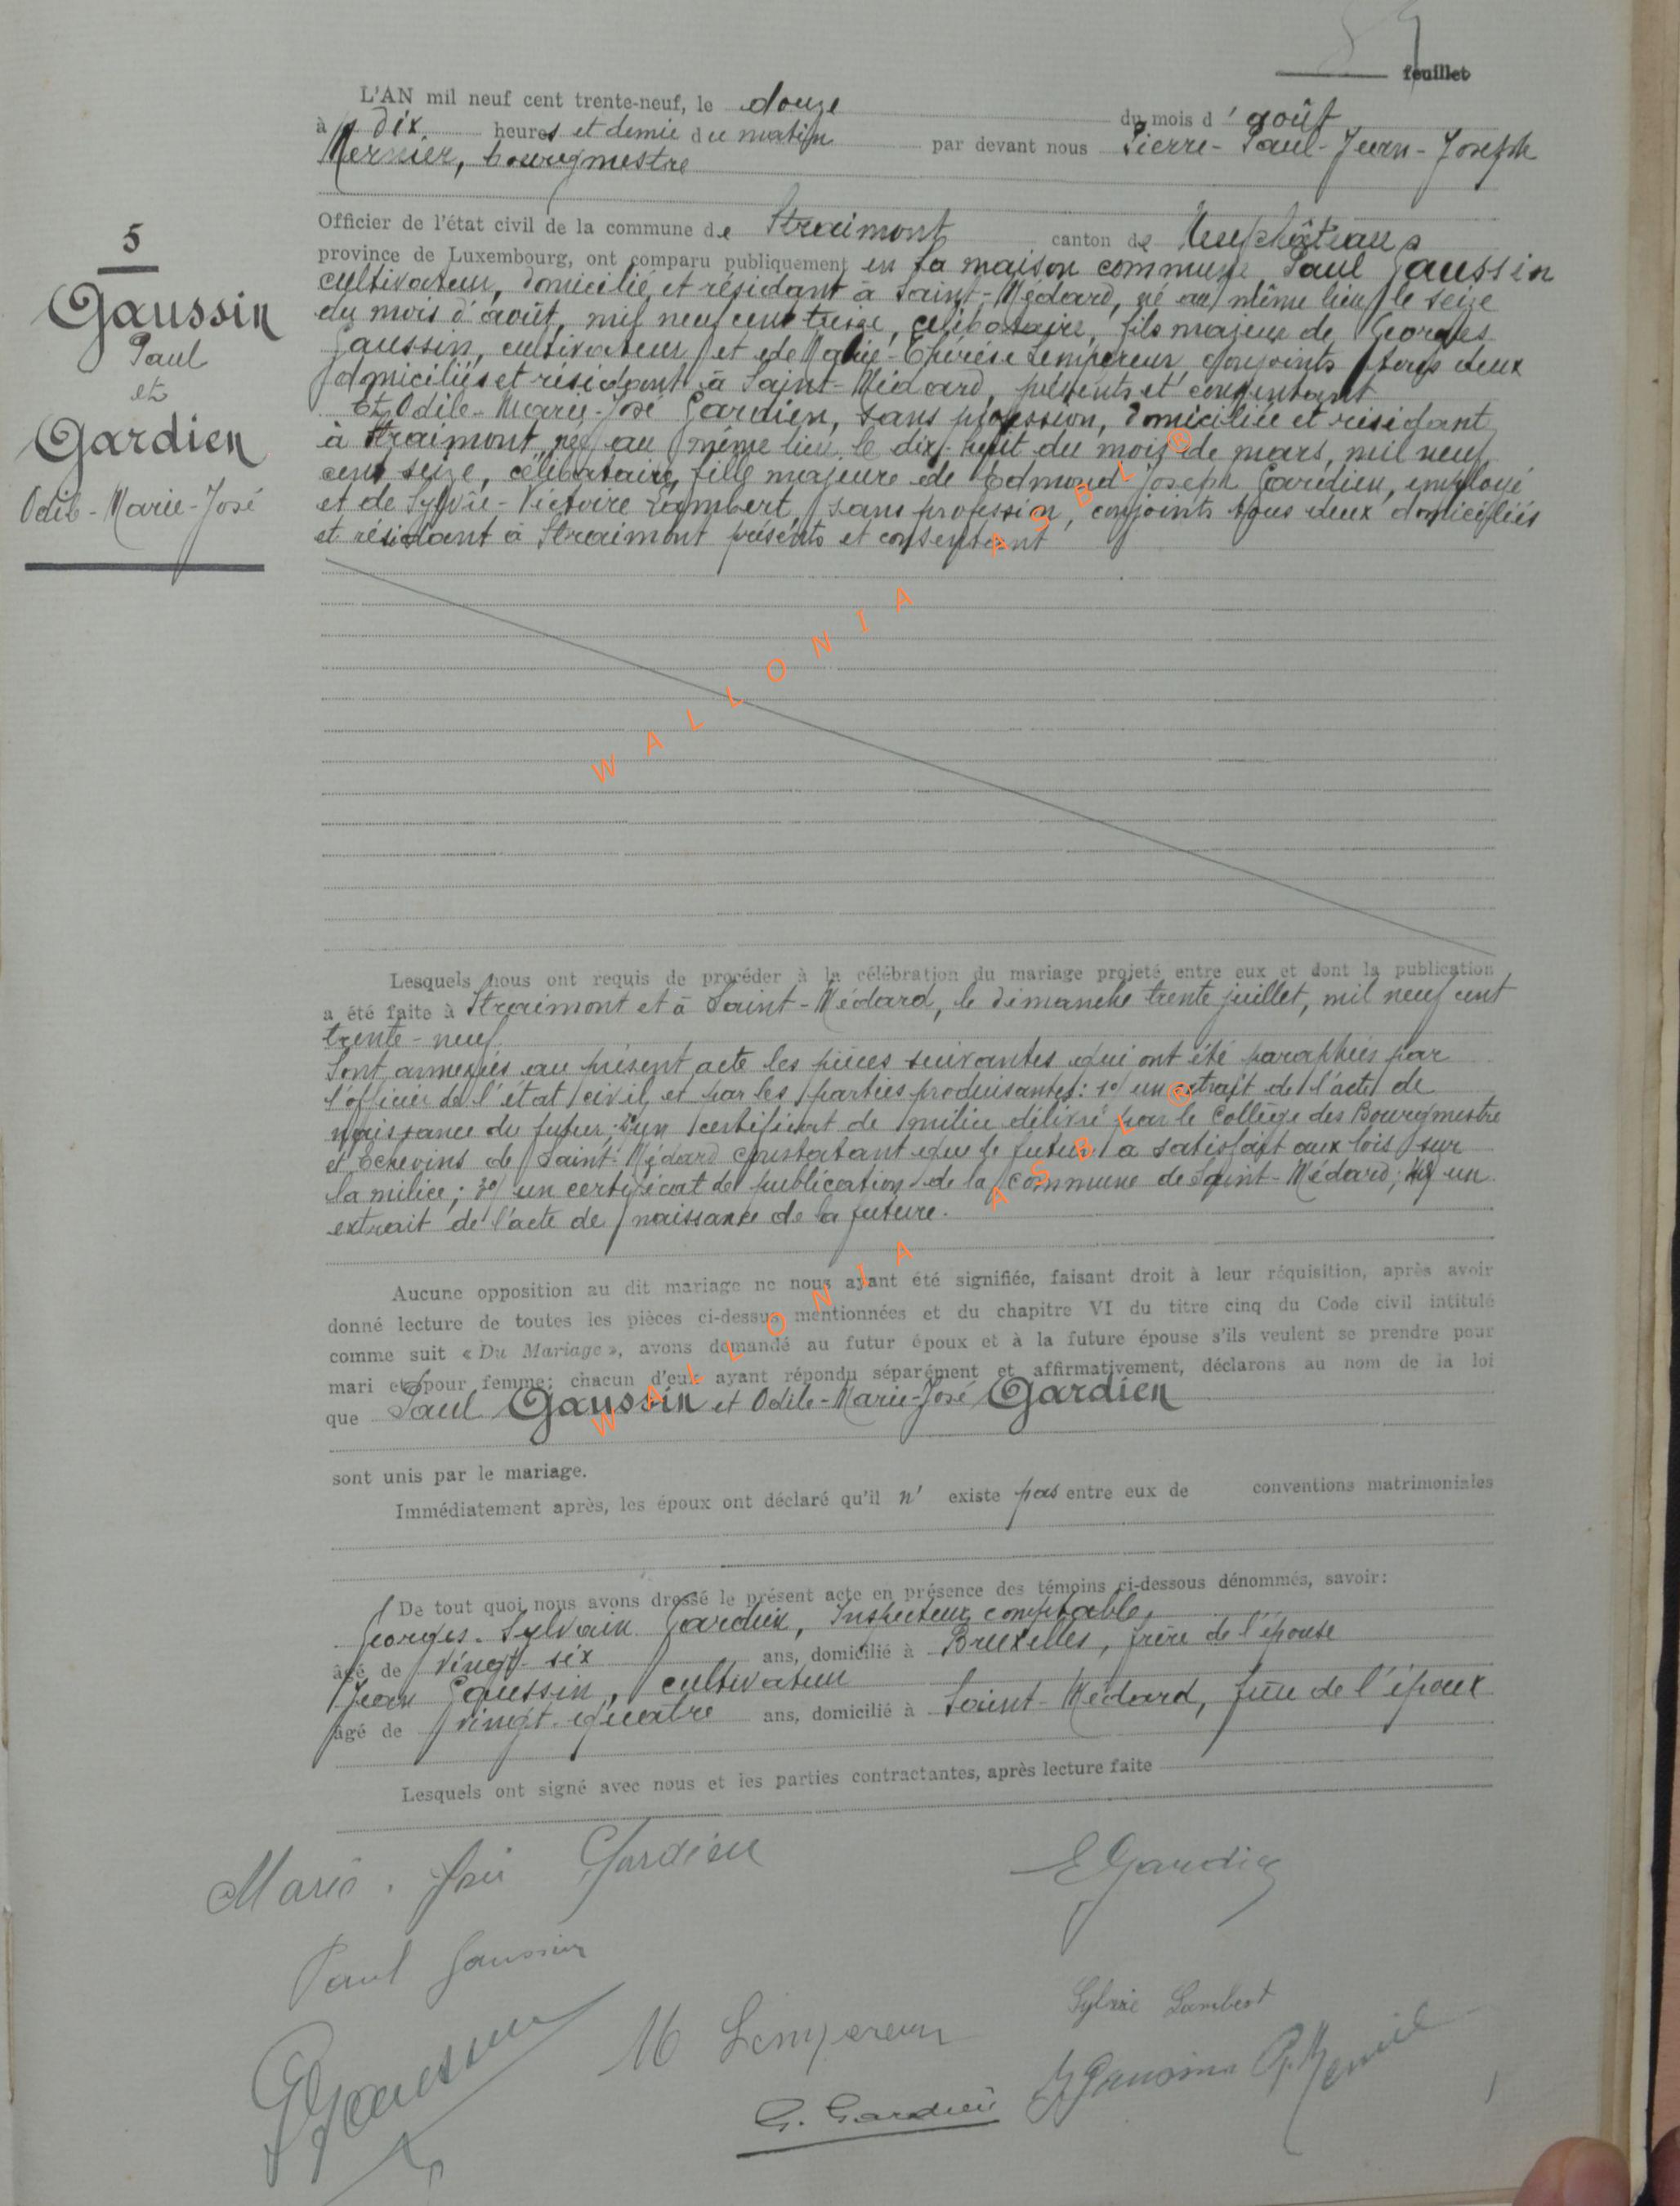 feuillet
L'AN mil neuf cent trente-neuf, le douze du mois d'août
à dix heures et demie du matin par devant nous Pierre-Paul-Jean-Joseph
Mernier, bourgmestre
Officier de l'état civil de la commune de Straimont canton de Neufchâteau
province de Luxembourg, ont comparu publiquement en la maison commune Paul Gaussin
cultivateur, domicilié et résidant à Saint-Médard, né au même lieu le seize
du mois d'août, mil neuf cent treize, célibataire, fils majeur de Georges
Gaussin, cultivateur et de Marie-Thérèse Lempereur conjoints tous deux
domiciliés et résidant à Saint-Médard, présents et consentant
Et Odile-Marie-José Gardien, sans profession, domiciliée et résidant
à Straimont, née au même lieu le dix-huit du mois de mars, mil neuf
cent seize, célibataire, fille majeure de Edmond-Joseph Gardien, employé
et de Sylvie-Victoire Lambert, sans profession, conjoints tous deux domiciliés
et résidant à Straimont présents et consentant
5
Gaussin
Paul
et
Gardien
Odile-Marie-José
Lesquels nous ont requis de procéder à la célébration du mariage projeté entre eux et dont la publication
a été faite à Straimont et à Saint-Médard, le dimanche trente juillet, mil neuf cent
trente-neuf.
Sont annexées au présent acte les pièces suivantes qui ont été paraphées par
l'officier de l'état civil et par les parties produisantes: 1°/ un extrait de l'acte de
naissance du futur; 2°/ un certificat de milice délivré par le Collège des Bourgmestre
et Echevins de Saint-Médard constatant que le futur a satisfait aux lois sur
la milice; 3°/ un certificat de publication de la commune de Saint-Médard; 4°/ un
extrait de l'acte de naissance de la future.
Aucune opposition au dit mariage ne nous ayant été signifiée, faisant droit à leur réquisition, après avoir
donné lecture de toutes les pièces ci-dessus mentionnées et du chapitre VI du titre cinq du Code civil intitulé
comme suit « Du Mariage », avons demandé au futur époux et à la future épouse s'ils veulent se prendre pour
mari et pour femme; chacun d'eux ayant répondu séparément et affirmativement, déclarons au nom de la loi
que Paul Gaussin et Odile-Marie-José Gardien
sont unis par le mariage.
Immédiatement après, les époux ont déclaré qu'il n' existe pas entre eux de conventions matrimoniales
De tout quoi nous avons dressé le présent acte en présence des témoins ci-dessous dénommés, savoir:
Georges-Sylvain Gardien, Inspecteur comptable,
âgé de vingt-six ans, domicilié à Bruxelles, frère de l'épouse
Jean Gaussin, cultivateur
âgé de vingt-quatre ans, domicilié à Saint-Médard, frère de l'époux
Lesquels ont signé avec nous et les parties contractantes, après lecture faite
Marie-José Gardien
E Gardien
Paul Gaussin
Sylvie Lambert
G Gaussin
M Lempereur
J Gaussin P. Mernier
G. Gardien
WALLONIA ASBL ®
WALLONIA ASBL ®